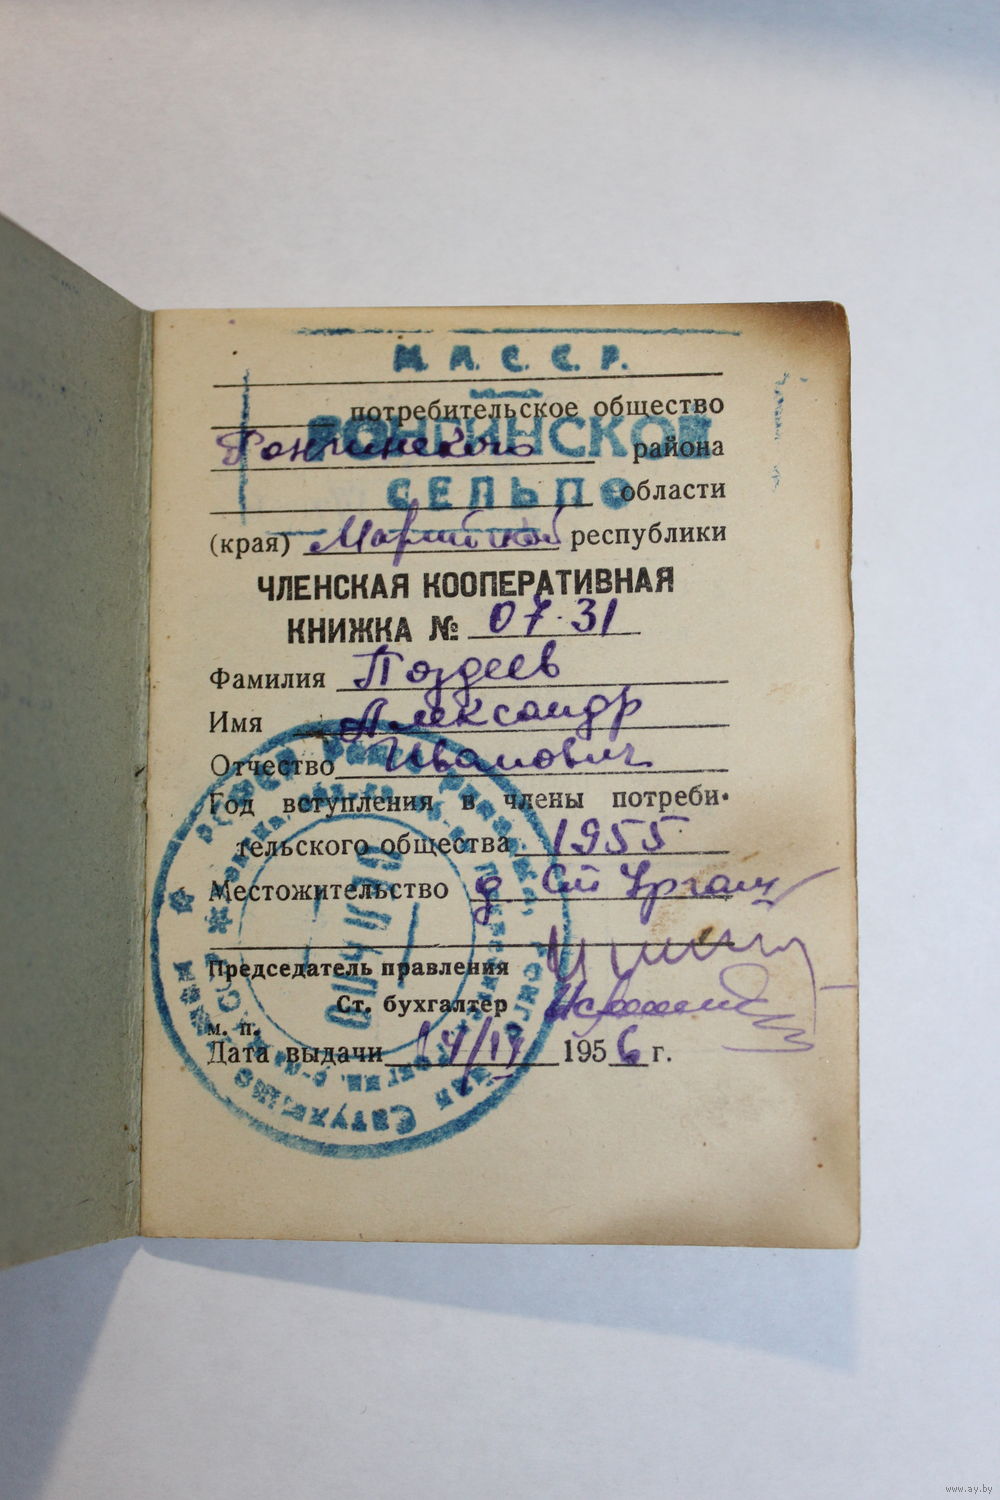 М. А. С. С. Р.
потребительское общество
РОНГИНСКОЕ
Ронгинского района
СЕЛЬПО
области
(края) Марийской республики
ЧЛЕНСКАЯ КООПЕРАТИВНАЯ
КНИЖКА № 07·31
Фамилия Поздеев
Имя Александр
Отчество Иванович
Год вступления в члены потреби-
тельского общества 1955
Местожительство д. Ст
Председатель правления
Ст. бухгалтер
м. п.
Дата выдачи 14/IV 1956 г.
СЕЛЬПО
www.ay.by